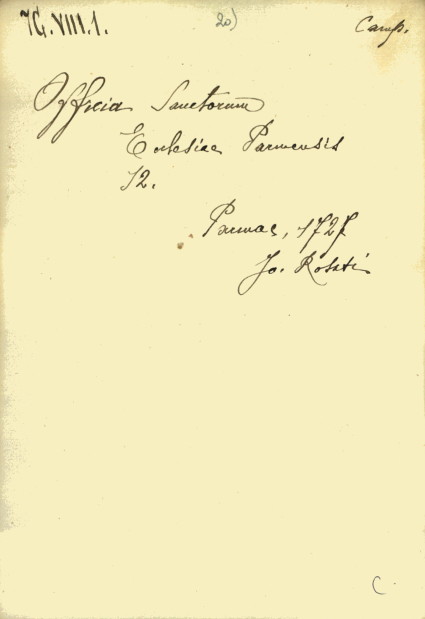 7G.VIII.1.
20)
Camp.
Officia Sanctorum
Ecclesiae Parmensis
12.
Parmae, 1727
Jo. Rosati
C